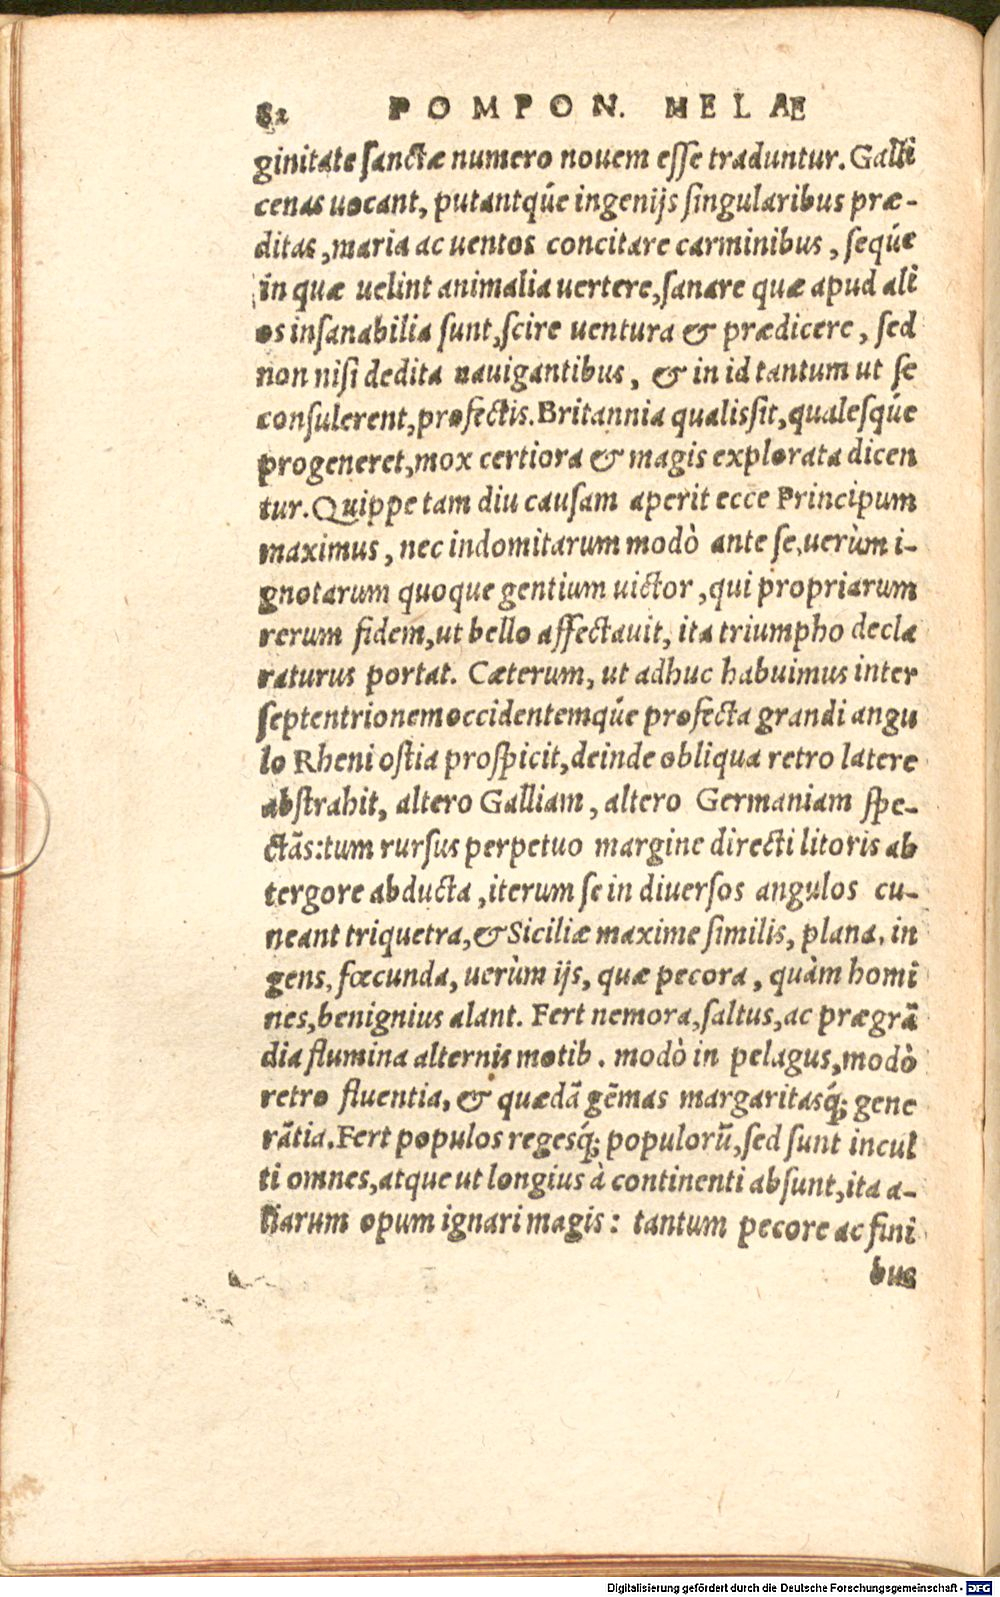 82 POMPON. MELÆ
ginitate ſanctæ numero nouem eſſe traduntur. Galli
cenas uocant, putantqúe ingenijs ſingularibus præ-
ditas, maria ac uentos concitare carminibus, ſeqúe
in quæ uelint animalia uertere, ſanare quæ apud ali
os inſanabilia ſunt, ſcire uentura & prædicere, ſed
non niſi dedita nauigantibus, & in id tantum ut ſe
conſulerent, profectis. Britannia qualis ſit, qualeſqúe
progeneret, mox certiora & magis explorata dicen
tur. Quippe tam diu cauſam aperit ecce Principum
maximus, nec indomitarum modò ante ſe, uerùm i-
gnotarum quoque gentium uictor, qui propriarum
rerum fidem, ut bello affectauit, ita triumpho decla
raturus portat. Cæterum, ut adhuc habuimus inter
ſeptentrionem occidentemqúe profecta grandi angu
lo Rheni oſtia proſpicit, deinde obliqua retro latere
abſtrahit, altero Galliam, altero Germaniam ſpe-
ctãs: tum rurſus perpetuo margine directi litoris ab
tergore abducta, iterum ſe in diuerſos angulos cu-
neant triquetra, & Siciliæ maxime ſimilis, plana, in
gens, fœcunda, uerùm ijs, quæ pecora, quàm homi
nes, benignius alant. Fert nemora, ſaltus, ac prægrã
dia flumina alternis motib. modò in pelagus, modò
retro fluentia, & quædã gẽmas margaritasq́; gene
rãtia. Fert populos regesq́; populorũ, ſed ſunt incul
ti omnes, atque ut longius à continenti abſunt, ita a-
liarum opum ignari magis: tantum pecore ac fini
bus
Digitalisierung gefördert durch die Deutsche Forschungsgemeinschaft - DFG